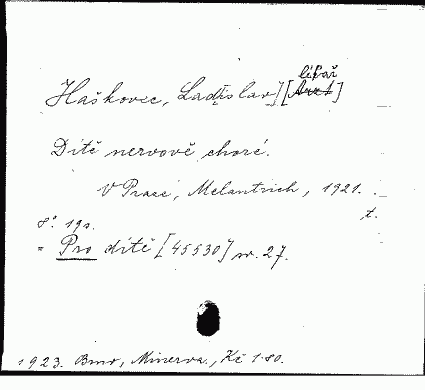 lékař
Haškovec, Ladislav] [Arzt]
Dítě nervově choré.
V Praze, Melantrich, 1921.
t.
8°. 19s.
= Pro dítě [45530] sv. 27.
1923. Brno, Minerva., Kč 1·80.